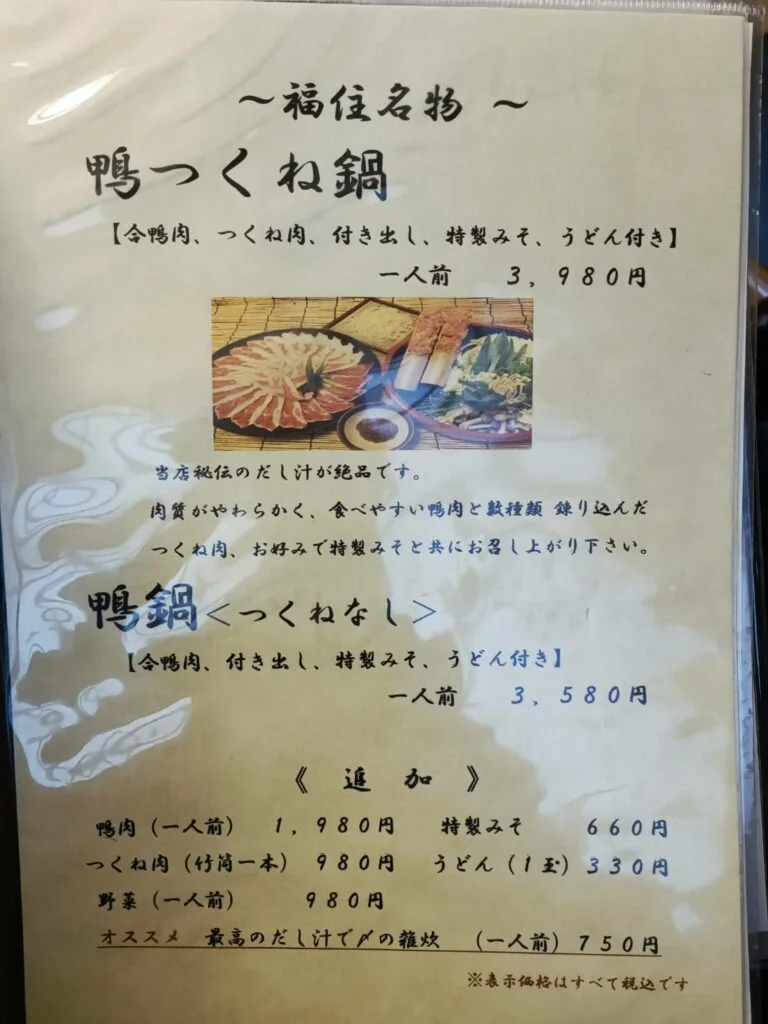 ～福住名物 ～
鴨つくね鍋
【合鴨肉、つくね肉、付き出し、特製みそ、うどん付き】
一人前 3,980円
当店秘伝のだし汁が絶品です。
肉質がやわらかく、食べやすい鴨肉と数種類 錬り込んだ
つくね肉、お好みで特製みそと共にお召し上がり下さい。
鴨鍋＜つくねなし＞
【合鴨肉、付き出し、特製みそ、うどん付き】
一人前 3,580円
《 追 加 》
鴨肉（一人前） 1,980円 特製みそ 660円
つくね肉（竹筒一本） 980円 うどん（1玉）330円
野菜（一人前） 980円
オススメ 最高のだし汁で〆の雑炊 （一人前）750円
※表示価格はすべて税込です